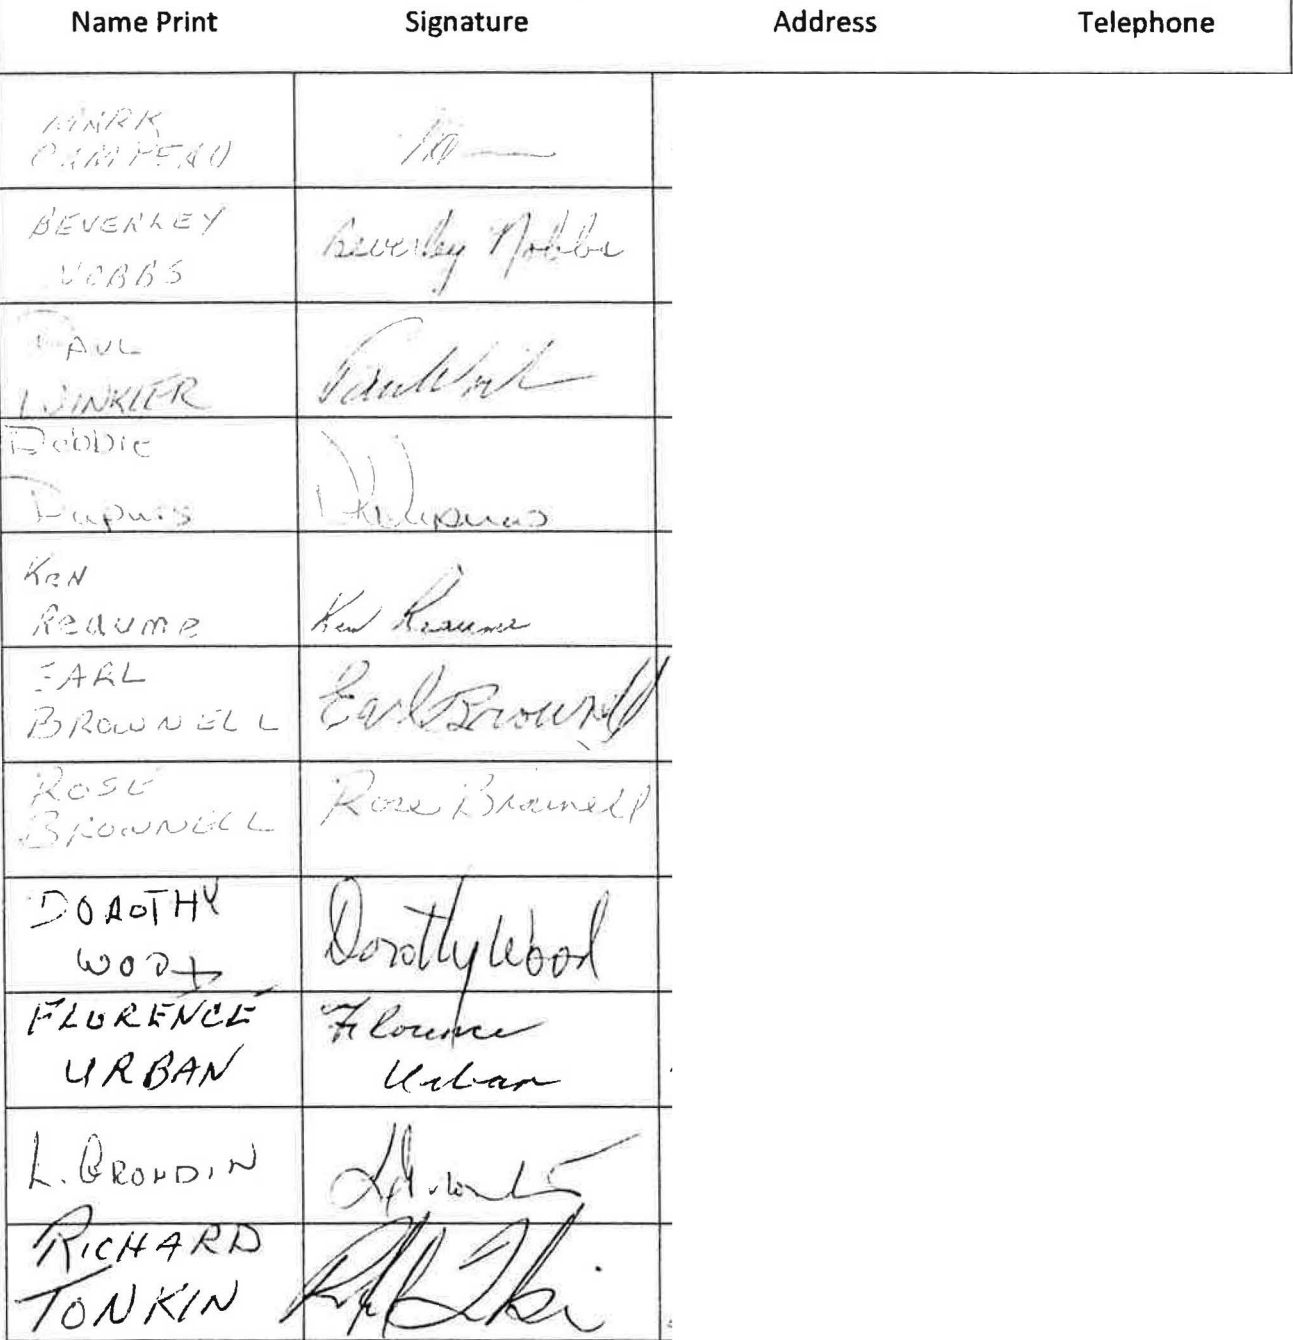 Name Print Signature Address Telephone
MARK
CAMPEAU
BEVERLEY Beverley Nobbs
NOBBS
PAUL
WINKLER
Debbie
Dupuis
Ken
Reaume Ken Reaume
EARL
BROWNELL Earl Brownell
ROSE Rose Brownell
BROWNELL
DOROTHY
WOOD Dorothy Wood
FLORENCE Florence
URBAN Urban
L. GRONDIN
RICHARD
TONKIN